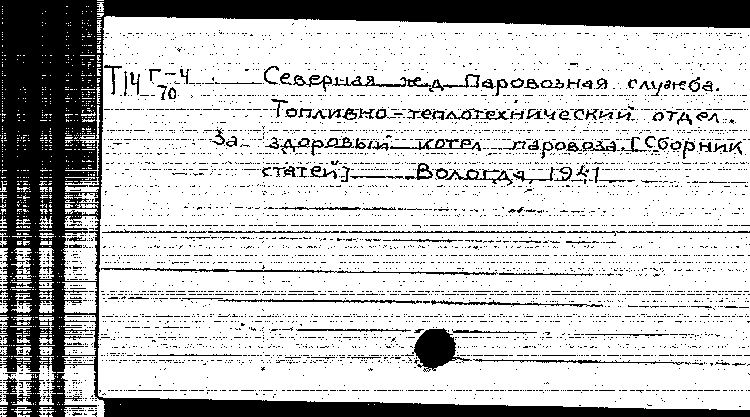 Т14 Г-4 Северная ж.д. Паровозная служба.
70
Топливно-теплотехнический отдел.
За здоровый котел паровоза. [Сборник
статей] Вологда, 1941